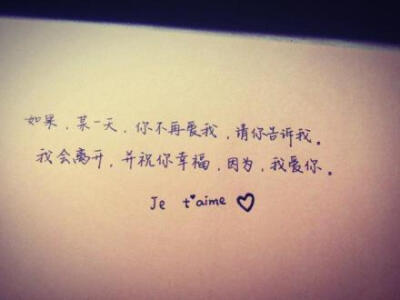 如果,某一天,你不再爱我,请你告诉我。
我会离开,并祝你幸福,因为,我爱你。
Je t'aime ♡